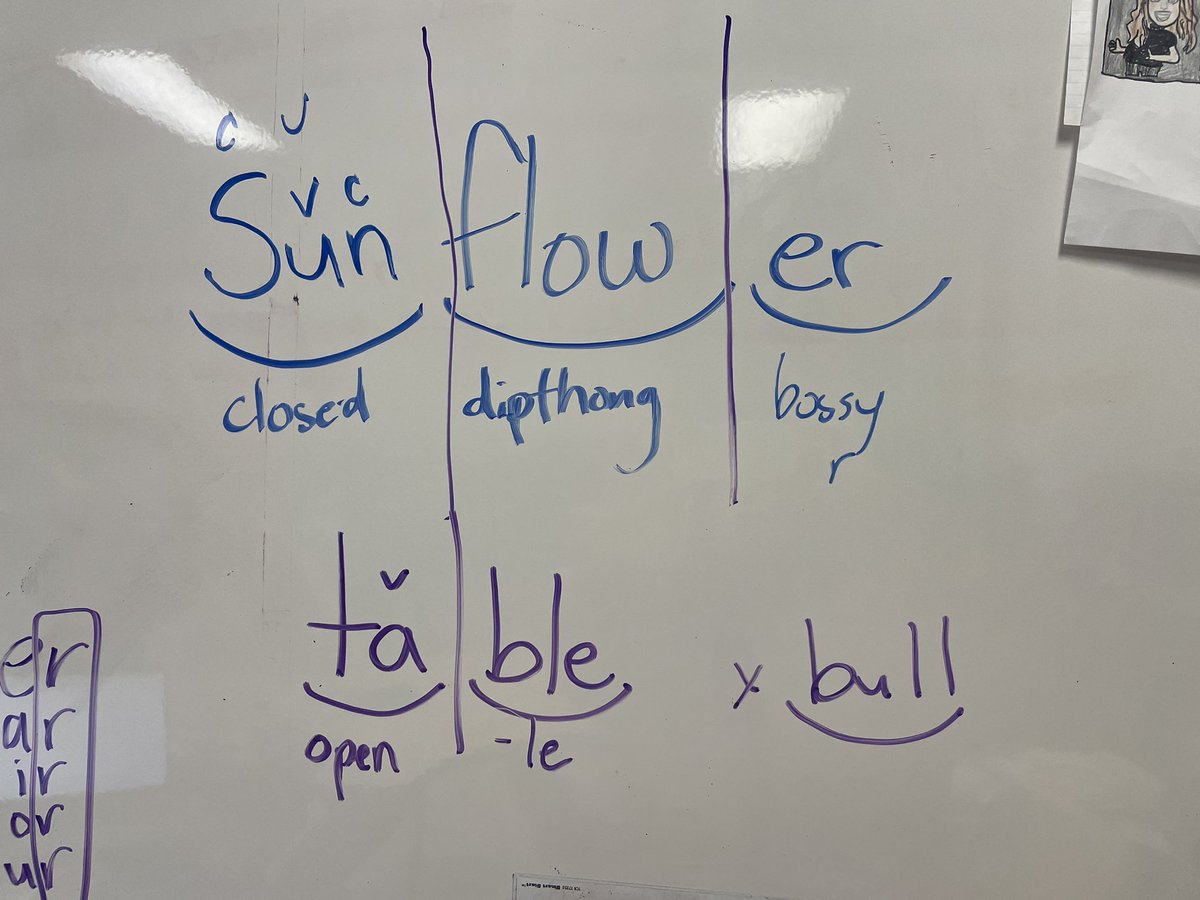 c u
v c
Sun flow er
closed dipthong bossy
r
v
ta ble x bull
open -le
er
ar
ir
or
ur